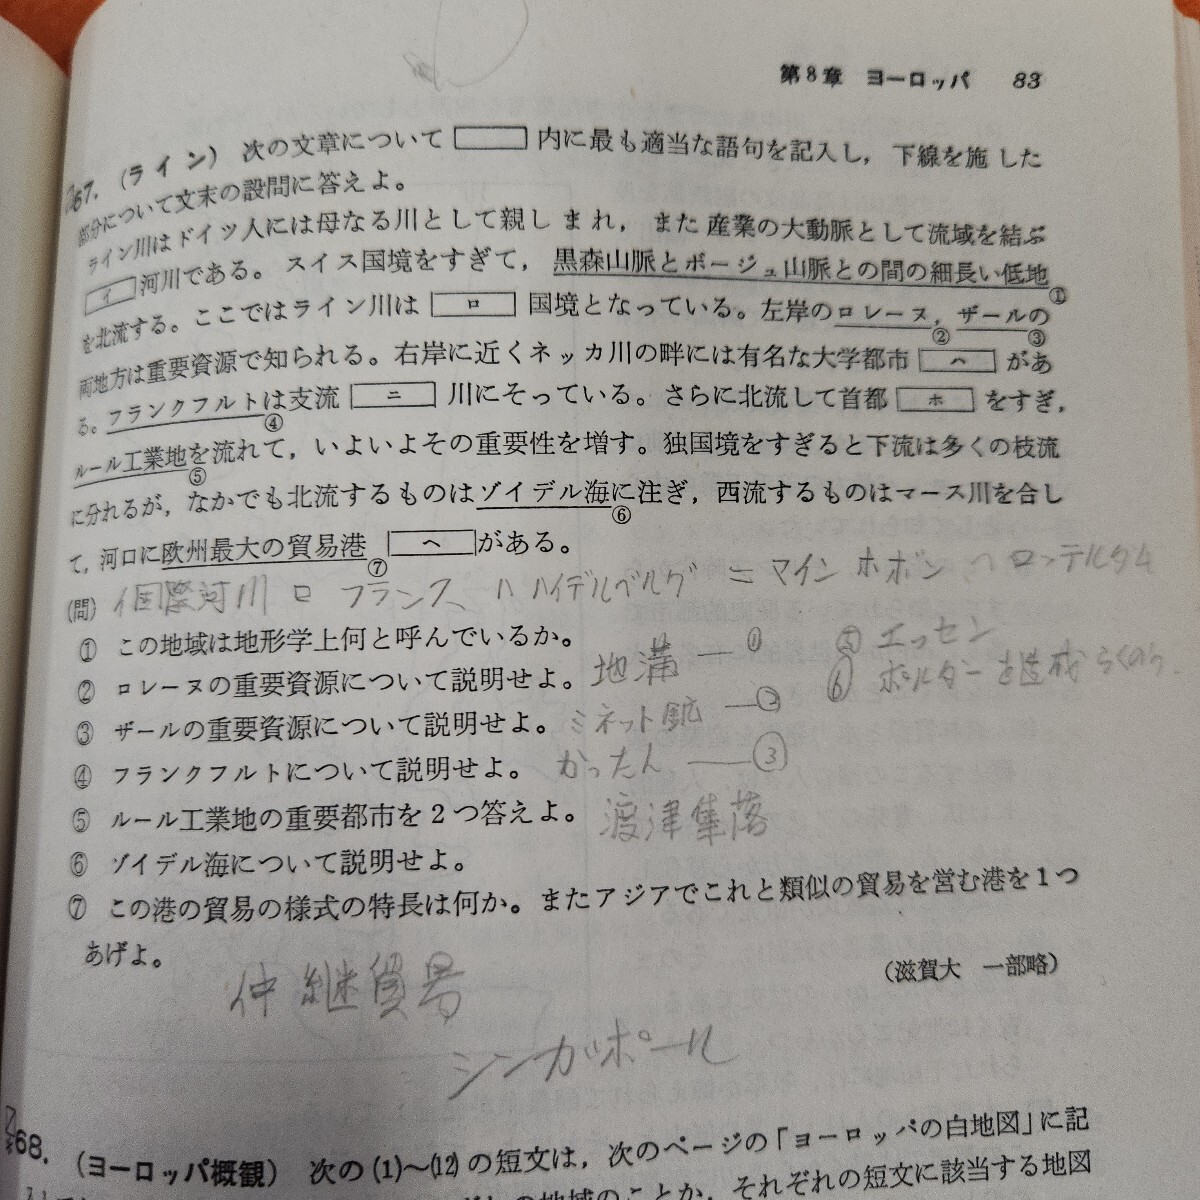 第8章 ヨーロッパ 83
67. (ライン) 次の文章について 内に最も適当な語句を記入し，下線を施した
部分について文末の設問に答えよ。
ライン川はドイツ人には母なる川として親しまれ，また産業の大動脈として流域を結ぶ
イ 河川である。スイス国境をすぎて，黒森山脈とボージュ山脈との間の細長い低地
①
を北流する。ここではライン川は ロ 国境となっている。左岸のロレーヌ，ザールの
② ③
両地方は重要資源で知られる。右岸に近くネッカ川の畔には有名な大学都市 ハ があ
る。フランクフルトは支流 ニ 川にそっている。さらに北流して首都 ホ をすぎ，
④
ルール工業地を流れて，いよいよその重要性を増す。独国境をすぎると下流は多くの枝流
⑤
に分れるが，なかでも北流するものはゾイデル海に注ぎ，西流するものはマース川を合し
⑥
て，河口に欧州最大の貿易港 ヘ がある。
⑦
(問) イ国際河川 ロ フランス ハ ハイデルベルグ ニ マイン ホ ボン ヘ ロッテルダム
① この地域は地形学上何と呼んでいるか。 地溝 ― ① ⑤ エッセン
② ロレーヌの重要資源について説明せよ。 ミネット鉱 ― ② ⑥ ポルダーを造成
③ ザールの重要資源について説明せよ。 かったん ― ③
④ フランクフルトについて説明せよ。 渡津集落
⑤ ルール工業地の重要都市を2つ答えよ。
⑥ ゾイデル海について説明せよ。
⑦ この港の貿易の様式の特長は何か。またアジアでこれと類似の貿易を営む港を1つ
あげよ。
(滋賀大 一部略)
仲継貿易
シンガポール
68. (ヨーロッパ概観) 次の(1)〜(12)の短文は，次のページの「ヨーロッパの白地図」に記
の地域のことか，それぞれの短文に該当する地図